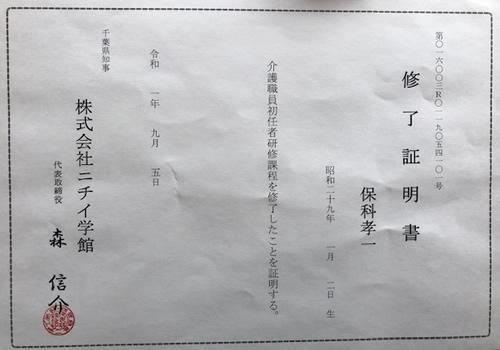 第〇一六〇〇三R〇一一九〇五四一〇一号
修了証明書
保科孝一
昭和二十九年 一月 二日 生
介護職員初任者研修課程を修了したことを証明する。
令和 一年 九月 五日
千葉県知事
株式会社ニチイ学館
代表取締役 森 信介